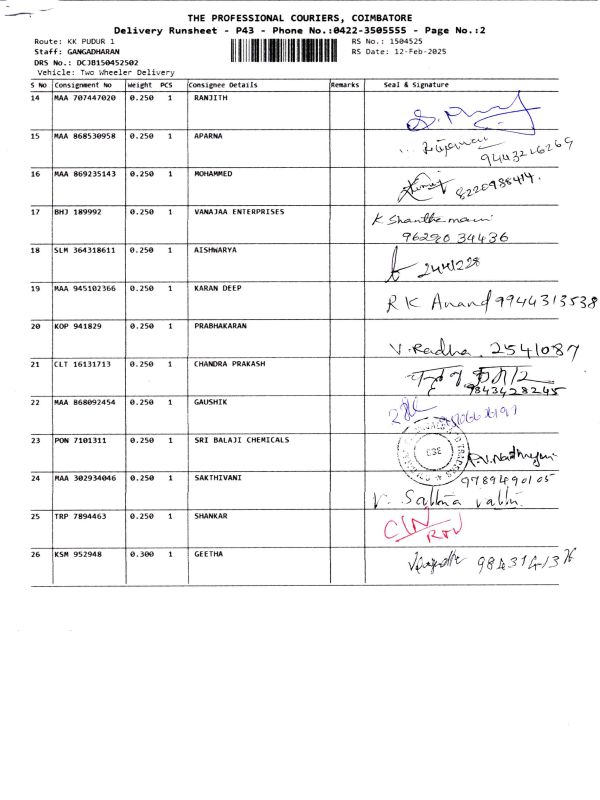 THE PROFESSIONAL COURIERS, COIMBATORE
Delivery Runsheet - P43 - Phone No.:0422-3505555 - Page No.:2
Route: KK PUDUR 1 RS No.: 1504525
Staff: GANGADHARAN RS Date: 12-Feb-2025
DRS No.: DCJB150452502
Vehicle: Two Wheeler Delivery
S No Consignment No Weight PCS Consignee Details Remarks Seal & Signature
14 MAA 707447020 0.250 1 RANJITH
15 MAA 868530958 0.250 1 APARNA
9443216269
16 MAA 869235143 0.250 1 MOHAMMED
8220988414.
17 BHJ 189992 0.250 1 VANAJAA ENTERPRISES K Shanthamani
96290 34436
18 SLM 364318611 0.250 1 AISHWARYA
2441228
19 MAA 945102366 0.250 1 KARAN DEEP
R K Anand 9944313538
20 KOP 941829 0.250 1 PRABHAKARAN
V. Radha. 2541087
21 CLT 16131713 0.250 1 CHANDRA PRAKASH
9843428245
22 MAA 868092454 0.250 1 GAUSHIK
23 PON 7101311 0.250 1 SRI BALAJI CHEMICALS
CBE
24 MAA 302934046 0.250 1 SAKTHIVANI 9789490105
25 TRP 7894463 0.250 1 SHANKAR
26 KSM 952948 0.300 1 GEETHA